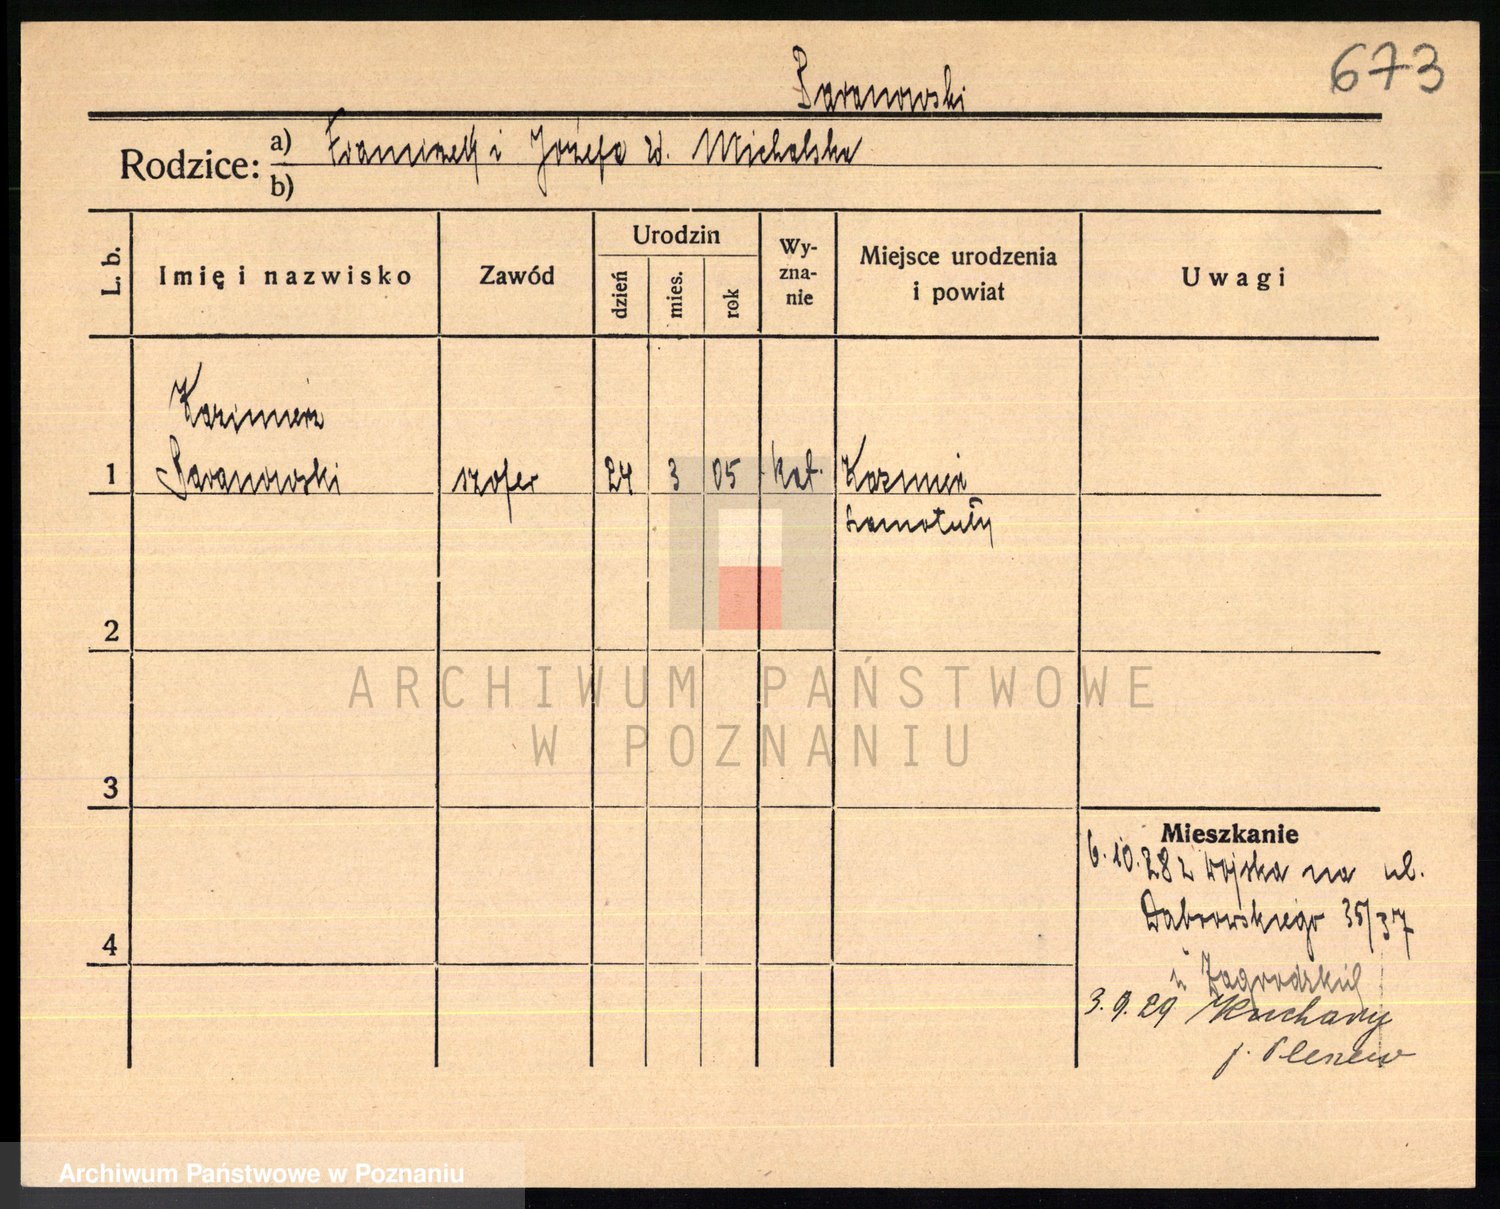 673
Rodzice: a) Franciszek i Józefa zd. Michalska
b)
L. b.
Imię i nazwisko
Zawód
Urodzin
dzień
mies.
rok
Wy-
zna-
nie
Miejsce urodzenia
i powiat
Uwagi
Kazimierz
1
szofer 24 3 05 kat. Kazmierz
Szamotuły
2
3
4
Mieszkanie
6.10.28 z wojska na ul.
Dąbrowskiego 35/37
u
3.9.29 Kuchary
p. Pleszew
ARCHIWUM PAŃSTWOWE
W POZNANIU
Archiwum Państwowe w Poznaniu